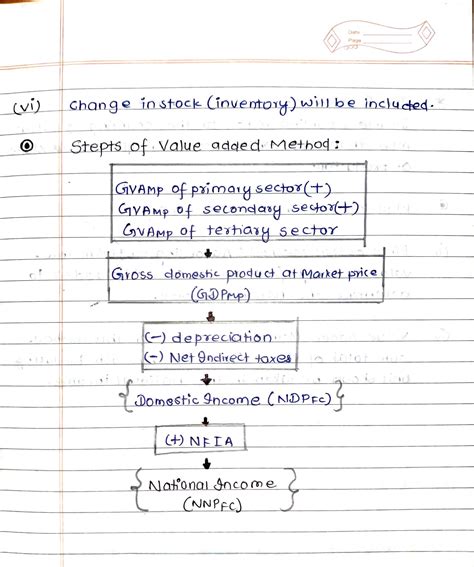 Date
Page
(vi) Change in stock (inventory) will be included.
Stepts of Value added Method :
GVAMP of primary sector(+)
GVAMP of secondary sector(+)
GVAMP of tertiary sector
Gross domestic product at Market price
(GDPMP)
(-) depreciation.
(-) Net Indirect taxes
Domestic Income (NDPFC)
(+) NFIA
National Income
(NNPFC)